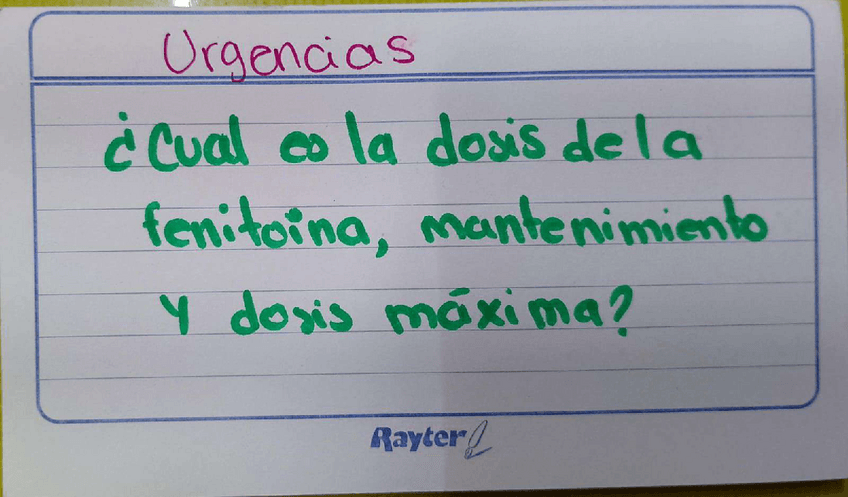 Urgencias
¿Cual es la dosis de la
fenitoina, mantenimiento
y dosis máxima?
Rayter